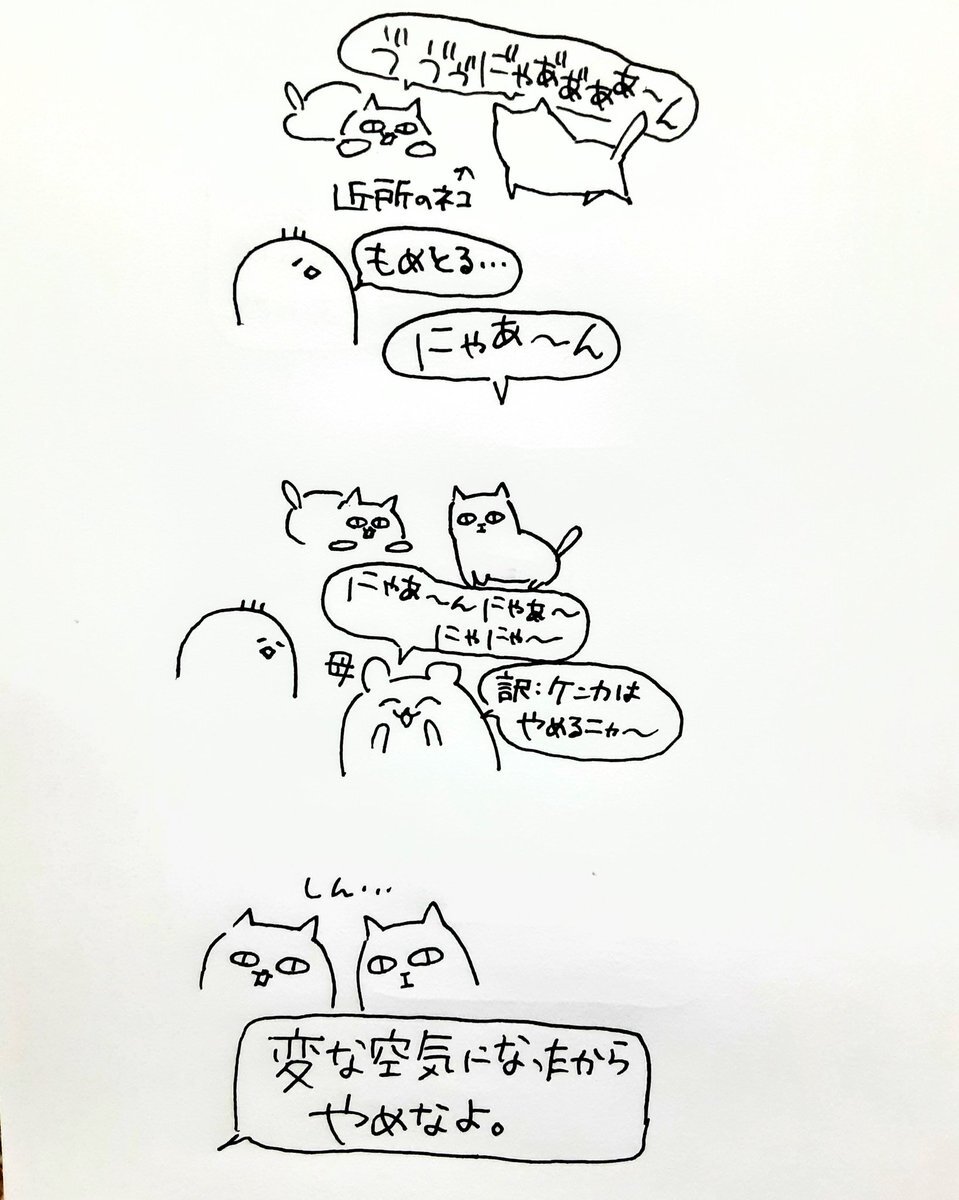 ゔ ゔゔにﾞゃあ゙あ゙ああ～ん
近所のネコ
もめとる…
にゃあ～ん
にゃあ～んにゃあ～
にゃにゃ～
母
訳：ケンカは
やめるニャ～
しん…
変な空気になったから
やめなよ。